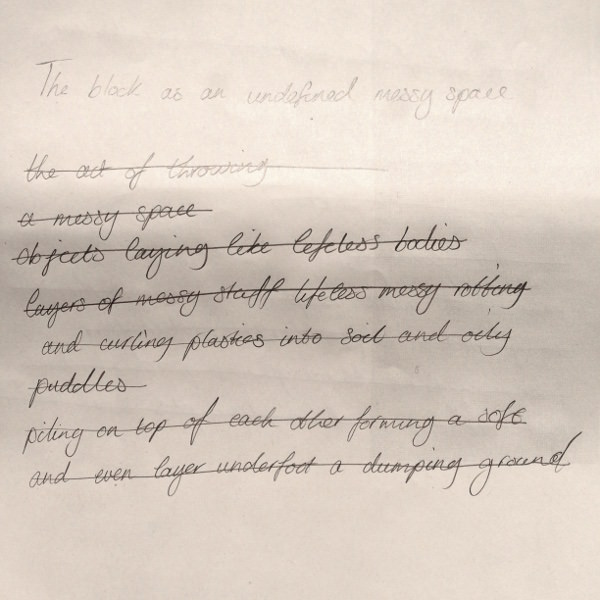 The block as an undefined messy space
the act of throwing
a messy space
objects laying like lefeless bodies
layers of messy stuff lifeless messy rotting
and curling plastics into soil and oily
puddles
piling on top of each other forming a soft
and even layer underfoot a dumping ground